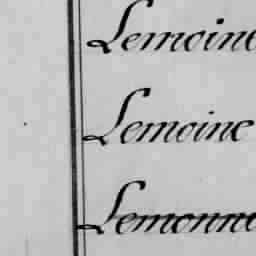 Lemoine
Lemoine
Lemonn